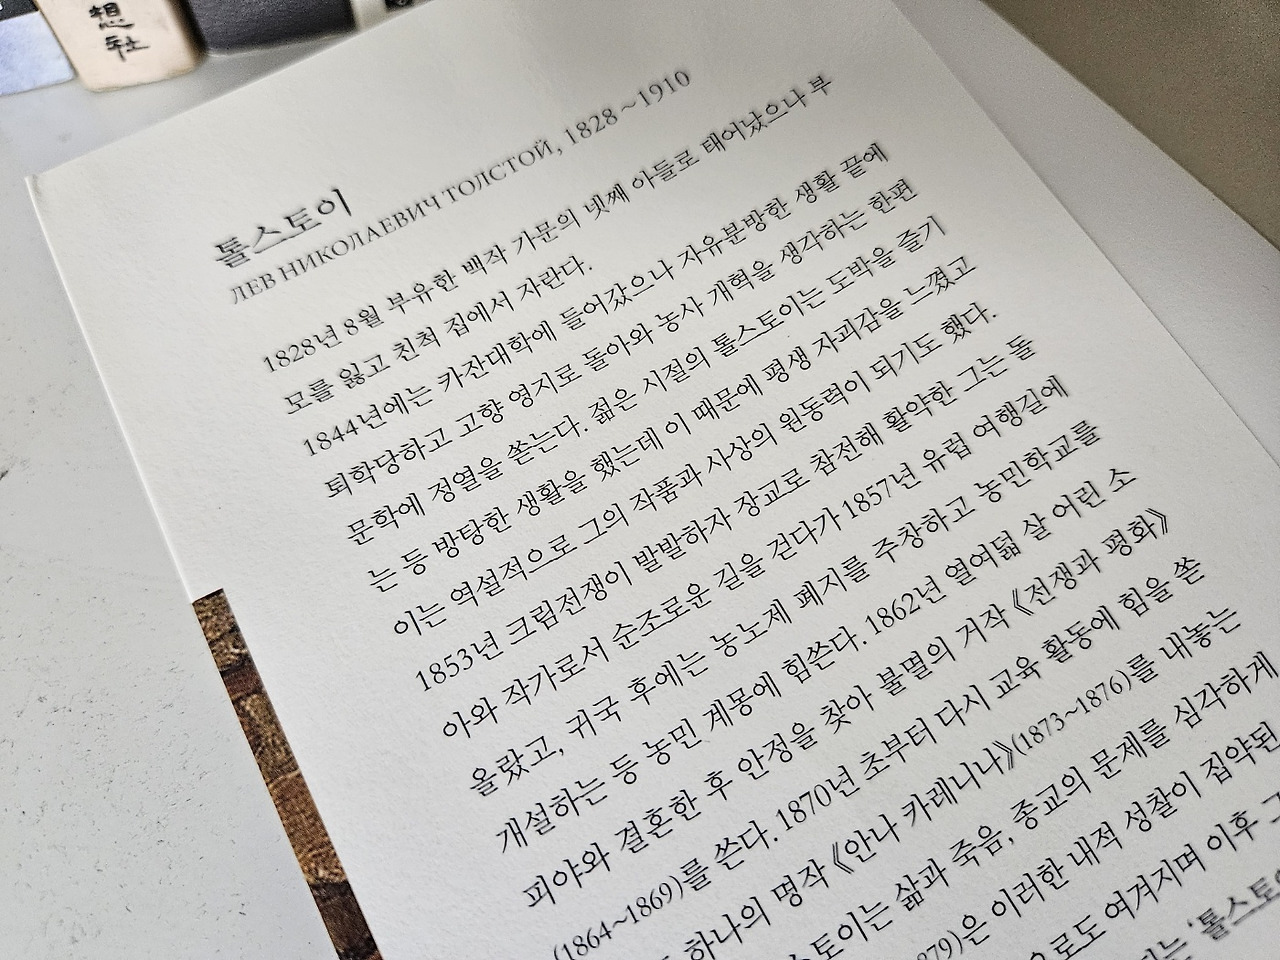 想
社
톨스토이
ЛЕВ НИКОЛАЕВИЧ ТОЛСТОЙ, 1828~1910
1828년 8월 부유한 백작 가문의 넷째 아들로 태어났으나 부
모를 잃고 친척 집에서 자란다.
1844년에는 카잔대학에 들어갔으나 자유분방한 생활 끝에
퇴학당하고 고향 영지로 돌아와 농사 개혁을 생각하는 한편
문학에 정열을 쏟는다. 젊은 시절의 톨스토이는 도박을 즐기
는 등 방탕한 생활을 했는데 이 때문에 평생 자괴감을 느꼈고
이는 역설적으로 그의 작품과 사상의 원동력이 되기도 했다.
1853년 크림전쟁이 발발하자 장교로 참전해 활약한 그는 돌
아와 작가로서 순조로운 길을 걷다가 1857년 유럽 여행길에
올랐고, 귀국 후에는 농노제 폐지를 주창하고 농민학교를
개설하는 등 농민 계몽에 힘쓴다. 1862년 열여덟 살 어린 소
피야와 결혼한 후 안정을 찾아 불멸의 거작 《전쟁과 평화》
(1864~1869)를 쓴다. 1870년 초부터 다시 교육 활동에 힘을 쏟
하나의 명작 《안나 카레니나》(1873~1876)를 내놓는
스토이는 삶과 죽음, 종교의 문제를 심각하게
879)은 이러한 내적 성찰이 집약된
으로도 여겨지며 이후 그
는 '톨스토이